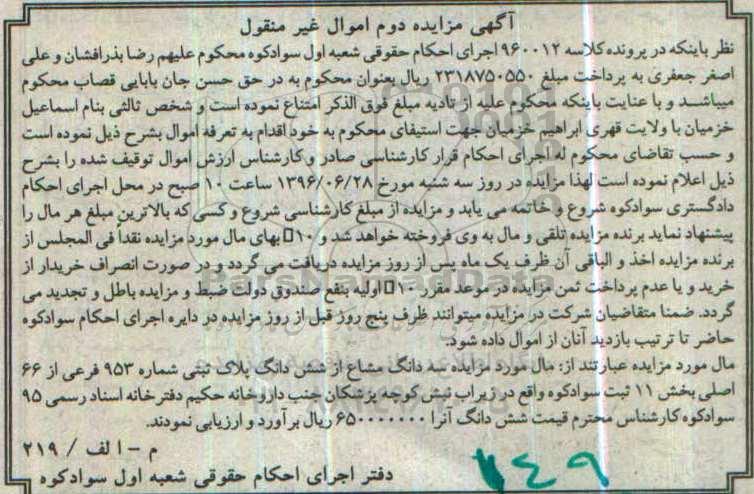 آگهی مزایده دوم اموال غیر منقول
نظر باینکه در پرونده کلاسه ۹۶۰۰۱۲ اجرای احکام حقوقی شعبه اول سوادکوه محکوم علیهم رضا بذرافشان و علی
اصغر جعفری به پرداخت مبلغ ۲۳۱۸۷۵۰۵۵۰ ریال بعنوان محکوم به در حق حسن جان بابایی قصاب محکوم
میباشد و با عنایت باینکه محکوم علیه از تادیه مبلغ فوق الذکر امتناع نموده است و شخص ثالثی بنام اسماعیل
خزمیان با ولایت قهری ابراهیم خزمیان جهت استیفای محکوم به خود اقدام به تعرفه اموال بشرح ذیل نموده است
و حسب تقاضای محکوم له اجرای احکام قرار کارشناسی صادر و کارشناس ارزش اموال توقیف شده را بشرح
ذیل اعلام نموده است لهذا مزایده در روز سه شنبه مورخ ۱۳۹۶/۰۶/۲۸ ساعت ۱۰ صبح در محل اجرای احکام
دادگستری سوادکوه شروع و خاتمه می یابد و مزایده از مبلغ کارشناسی شروع و کسی که بالاترین مبلغ هر مال را
پیشنهاد نماید برنده مزایده تلقی و مال به وی فروخته خواهد شد و ۱۰ بهای مال مورد مزایده نقداً فی المجلس از
برنده مزایده اخذ و الباقی آن ظرف یک ماه پس از روز مزایده دریافت می گردد و در صورت انصراف خریدار از
خرید و یا عدم پرداخت ثمن مزایده در موعد مقرر ۱۰ اولیه بنفع صندوق دولت ضبط و مزایده باطل و تجدید می
گردد. ضمنا متقاضیان شرکت در مزایده میتوانند ظرف پنج روز قبل از روز مزایده در دایره اجرای احکام سوادکوه
حاضر تا ترتیب بازدید آنان از اموال داده شود.
مال مورد مزایده عبارتند از: مال مورد مزایده سه دانگ مشاع از شش دانگ پلاک ثبتی شماره ۹۵۳ فرعی از ۶۶
اصلی بخش ۱۱ ثبت سوادکوه واقع در زیراب نبش کوچه پزشکان جنب داروخانه حکیم دفترخانه اسناد رسمی ۹۵
سوادکوه کارشناس محترم قیمت شش دانگ آنرا ۶۵۰۰۰۰۰۰۰۰ ریال برآورد و ارزیابی نمودند.
م - ا لف / ۲۱۹
دفتر اجرای احکام حقوقی شعبه اول سوادکوه